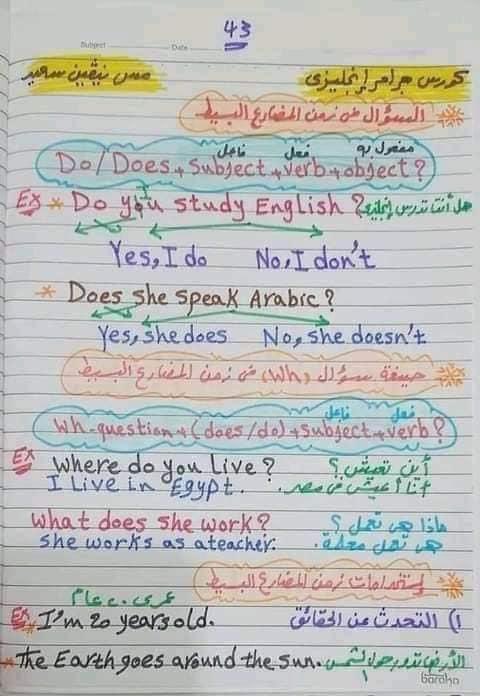 43
Subject Date
كورس جرامر إنجليزى مس نيڤين سعيد
السؤال فى زمن المضارع البسيط
فاعل فعل مفعول به
Do/Does+Subject+verb+object?
Ex * Do you study English? هل أنت تدرس إنجليزى
Yes, I do No, I don't
* Does she speak Arabic?
Yes, she does No, she doesn't
صيغة سؤال (Wh) فى زمن المضارع البسيط
فاعل فعل
Wh-question+(does/do)+Subject+verb?
Ex where do you live? أين تعيش؟
I live in Egypt. أنا أعيش فى مصر.
what does she work? ماذا هى تعمل؟
she works as ateacher. هى تعمل معلمة.
إستخدامات زمن المضارع البسيط
عمرى ٢٠ عام
Ex * I'm 20 years old. ١) التحدث عن الحقائق
* The Earth goes around the sun. الأرض تدور حول الشمس
baraka